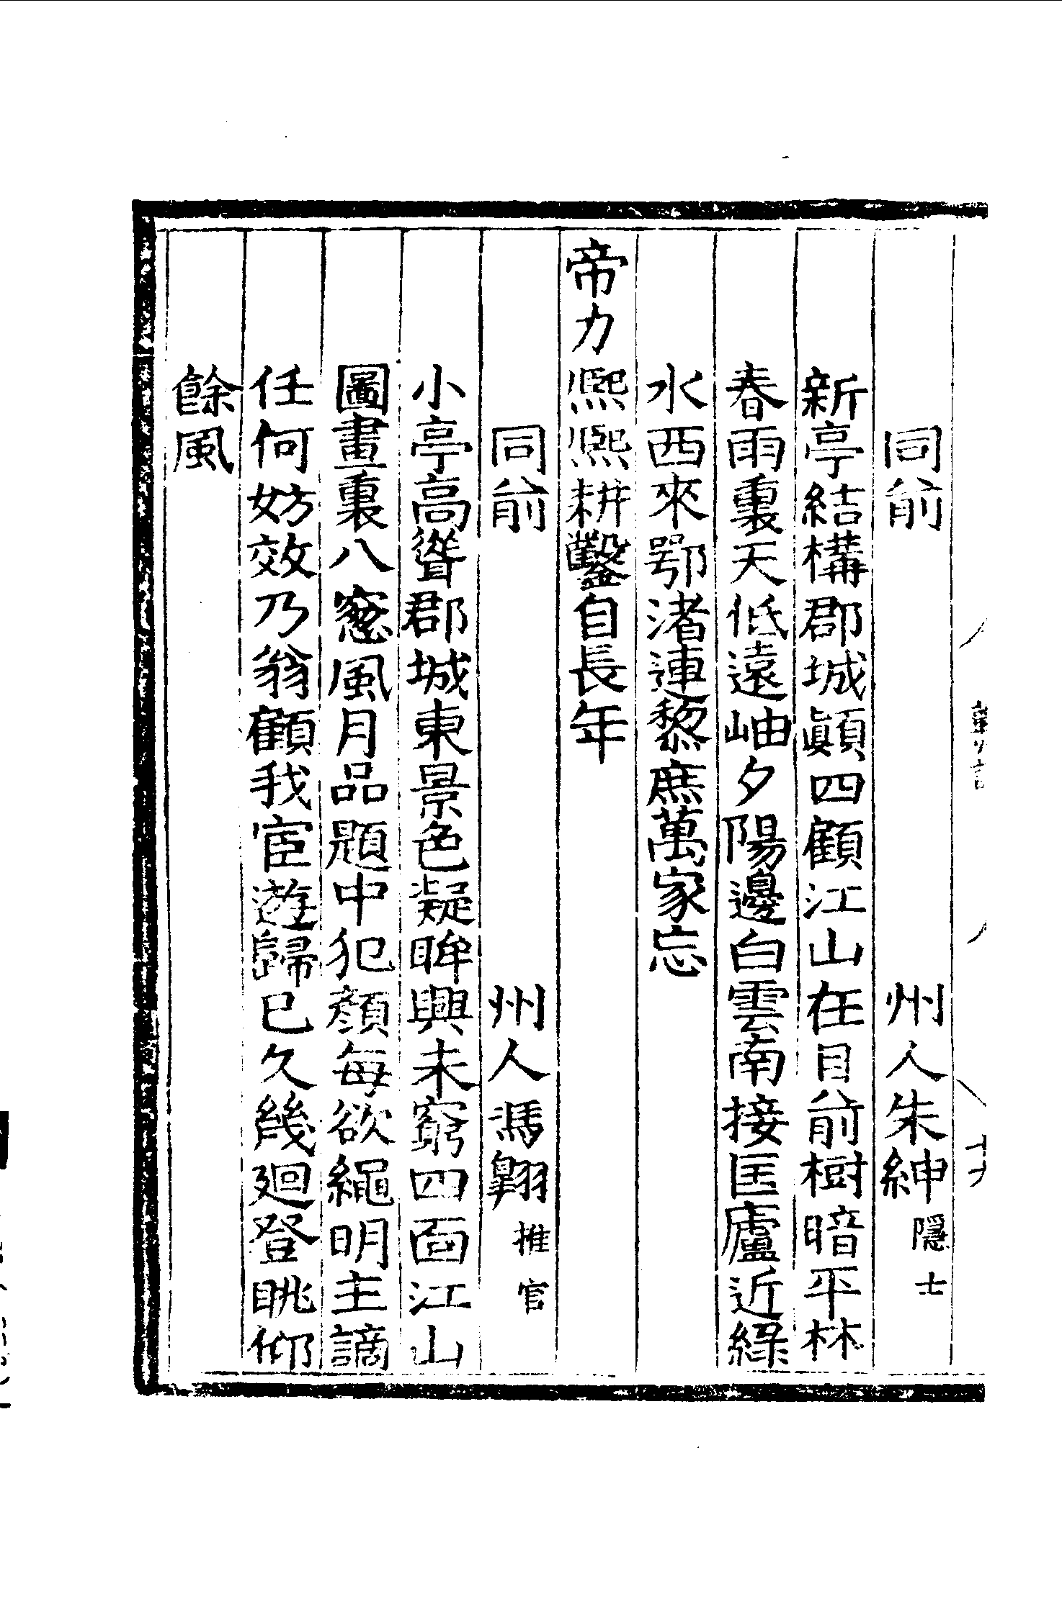 同前　州人朱紳隱士
新亭結構郡城顛四顧江山在目前樹暗平林
春雨裏天低遠岫夕陽邊白雲南接匡廬近綠
水西來鄂渚連黎庶萬家忘
帝力熙熙耕鑿自長年
同前　州人馮翺推官
小亭高聳郡城東景色凝眸興未窮四面江山
圖畫裏八窓風月品題中犯顏每欲繩明主謫
任何妨效乃翁顧我宦遊歸已久幾廻登眺仰
餘風